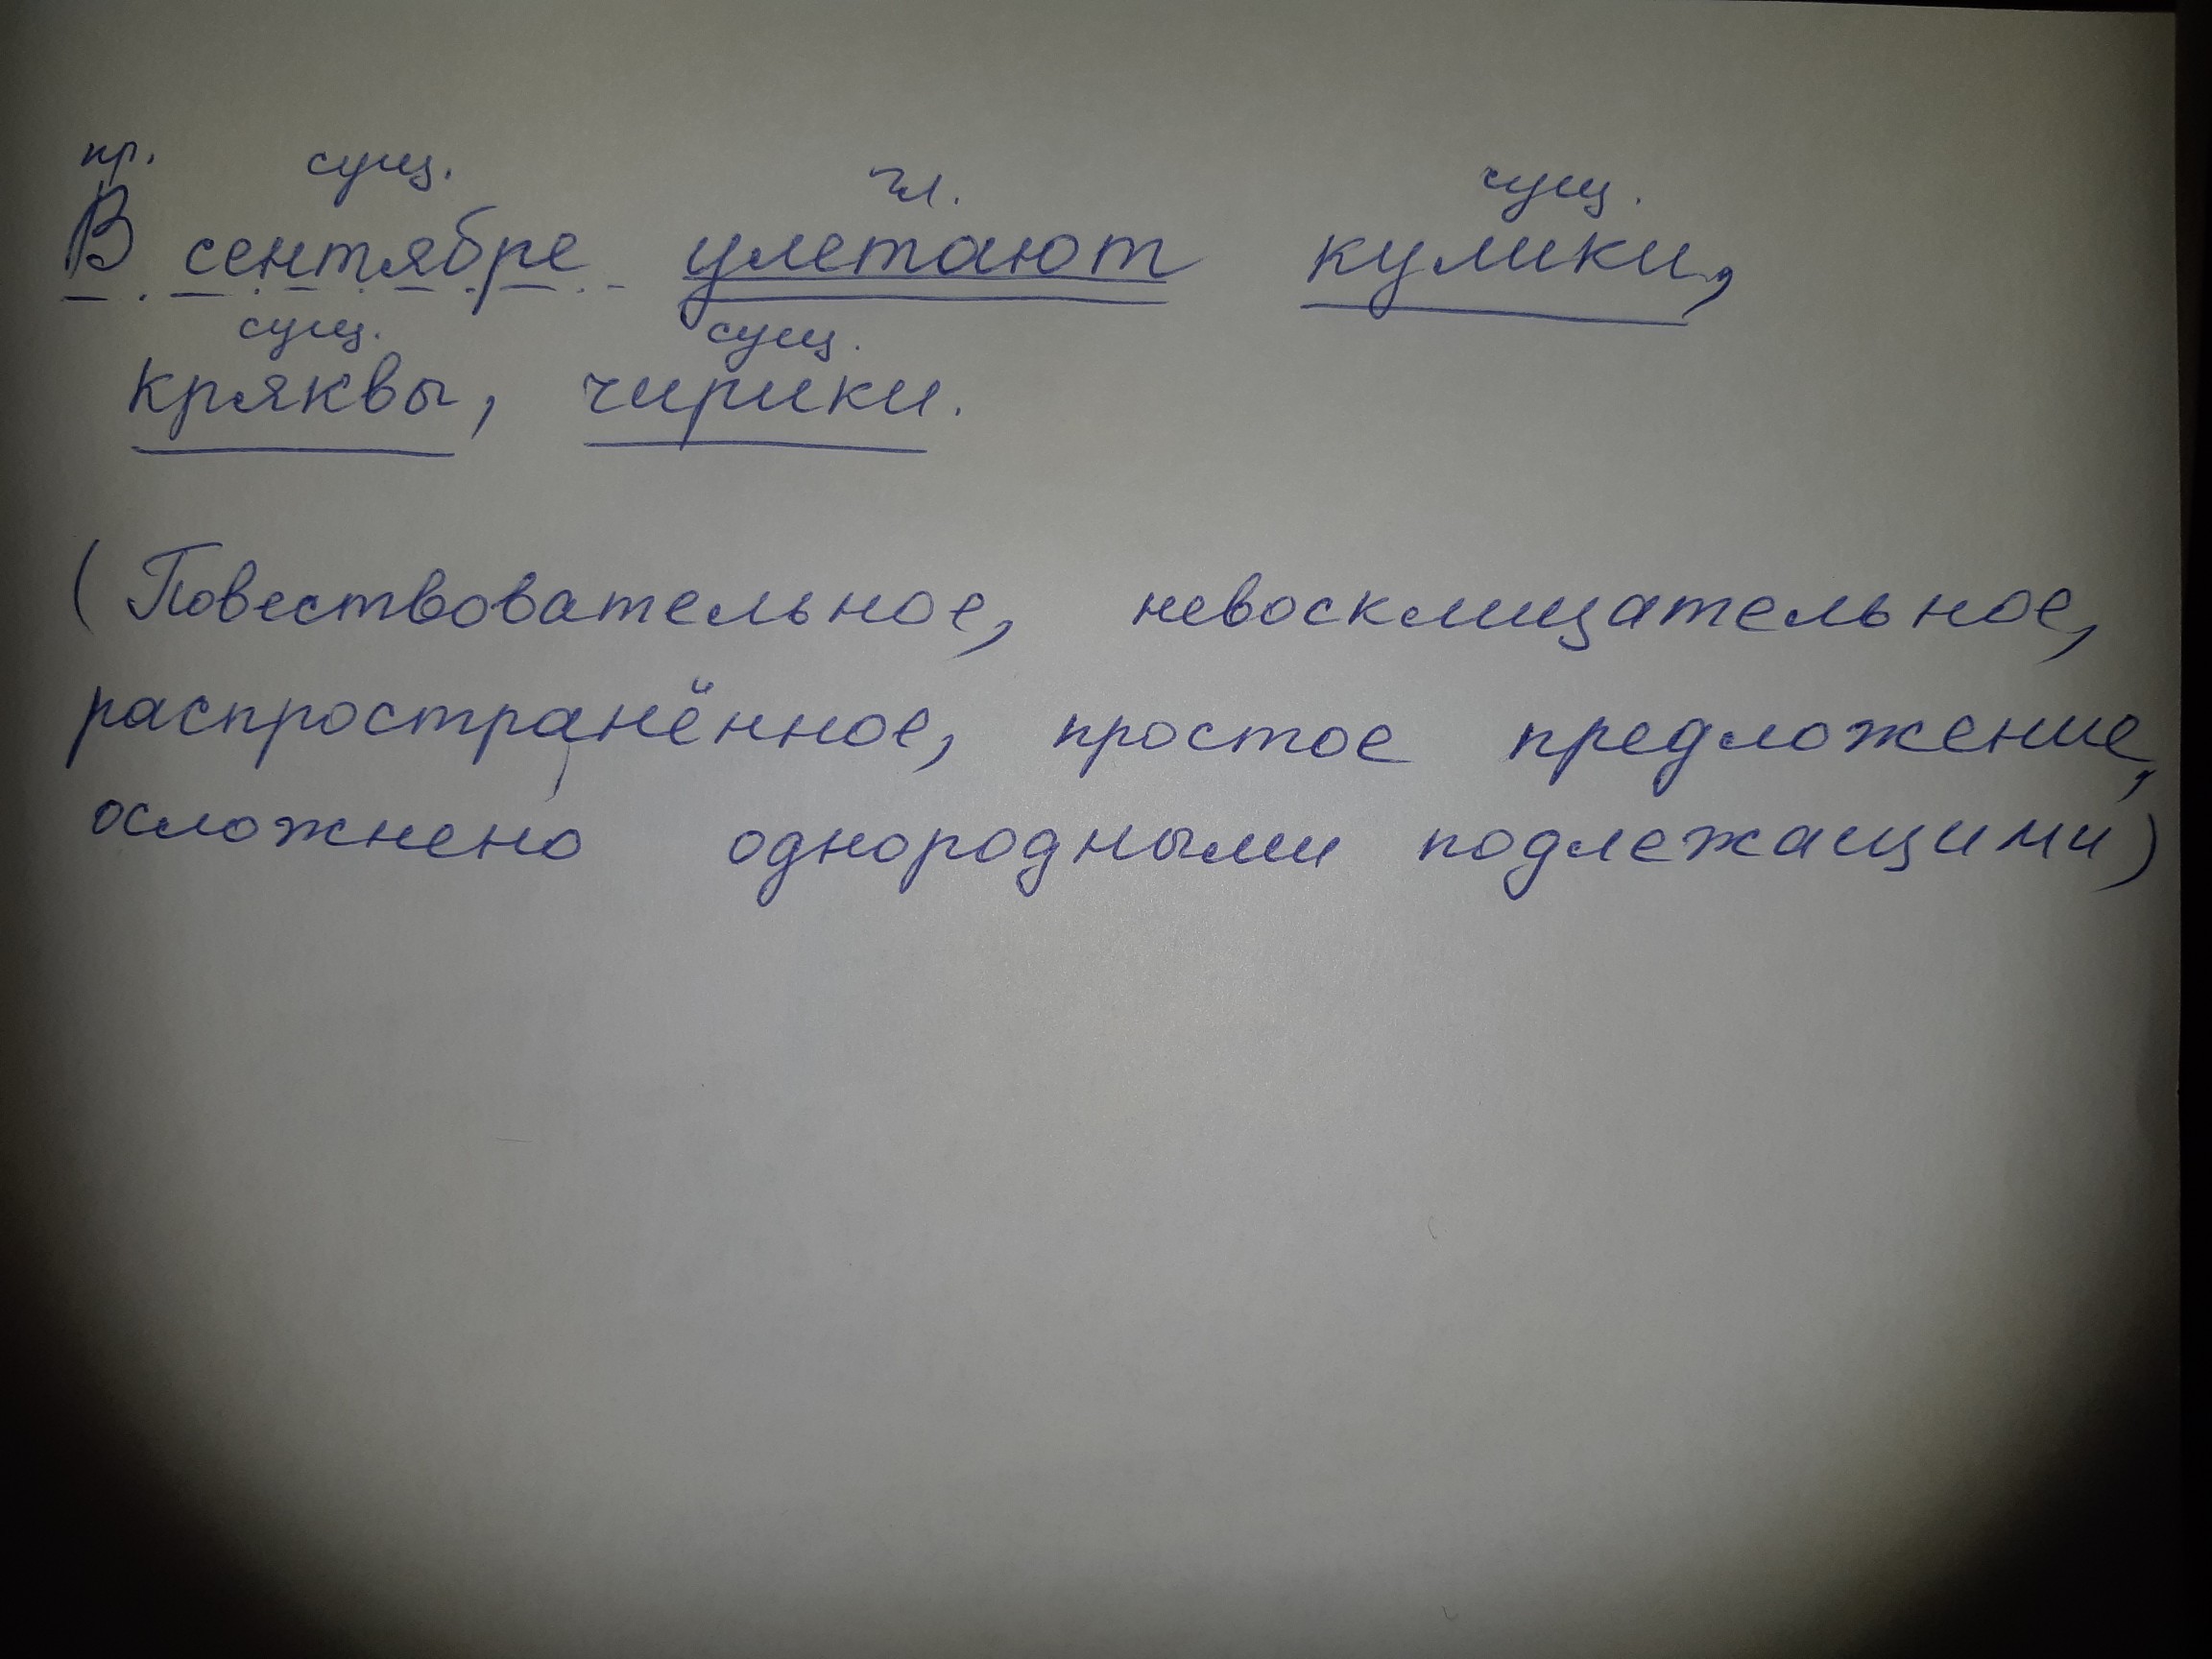 пр. сущ. гл. сущ.
В сентябре улетают кулики,
сущ. сущ.
кряквы, чирики.
(Повествовательное, невосклицательное,
распространённое, простое предложение,
осложнено однородными подлежащими)